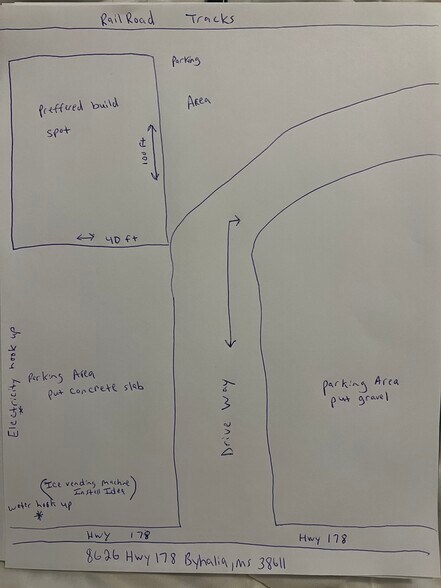 RailRoad Tracks
Parking
Area
Preffered build
spot
100 ft
40 ft
Electricity hook up
*
Parking Area
put concrete slab
Drive Way
parking Area
put gravel
(Ice vending machine
Install Idea)
Water hook up
*
Hwy 178
Hwy 178
8626 Hwy 178 Byhalia, MS 38611